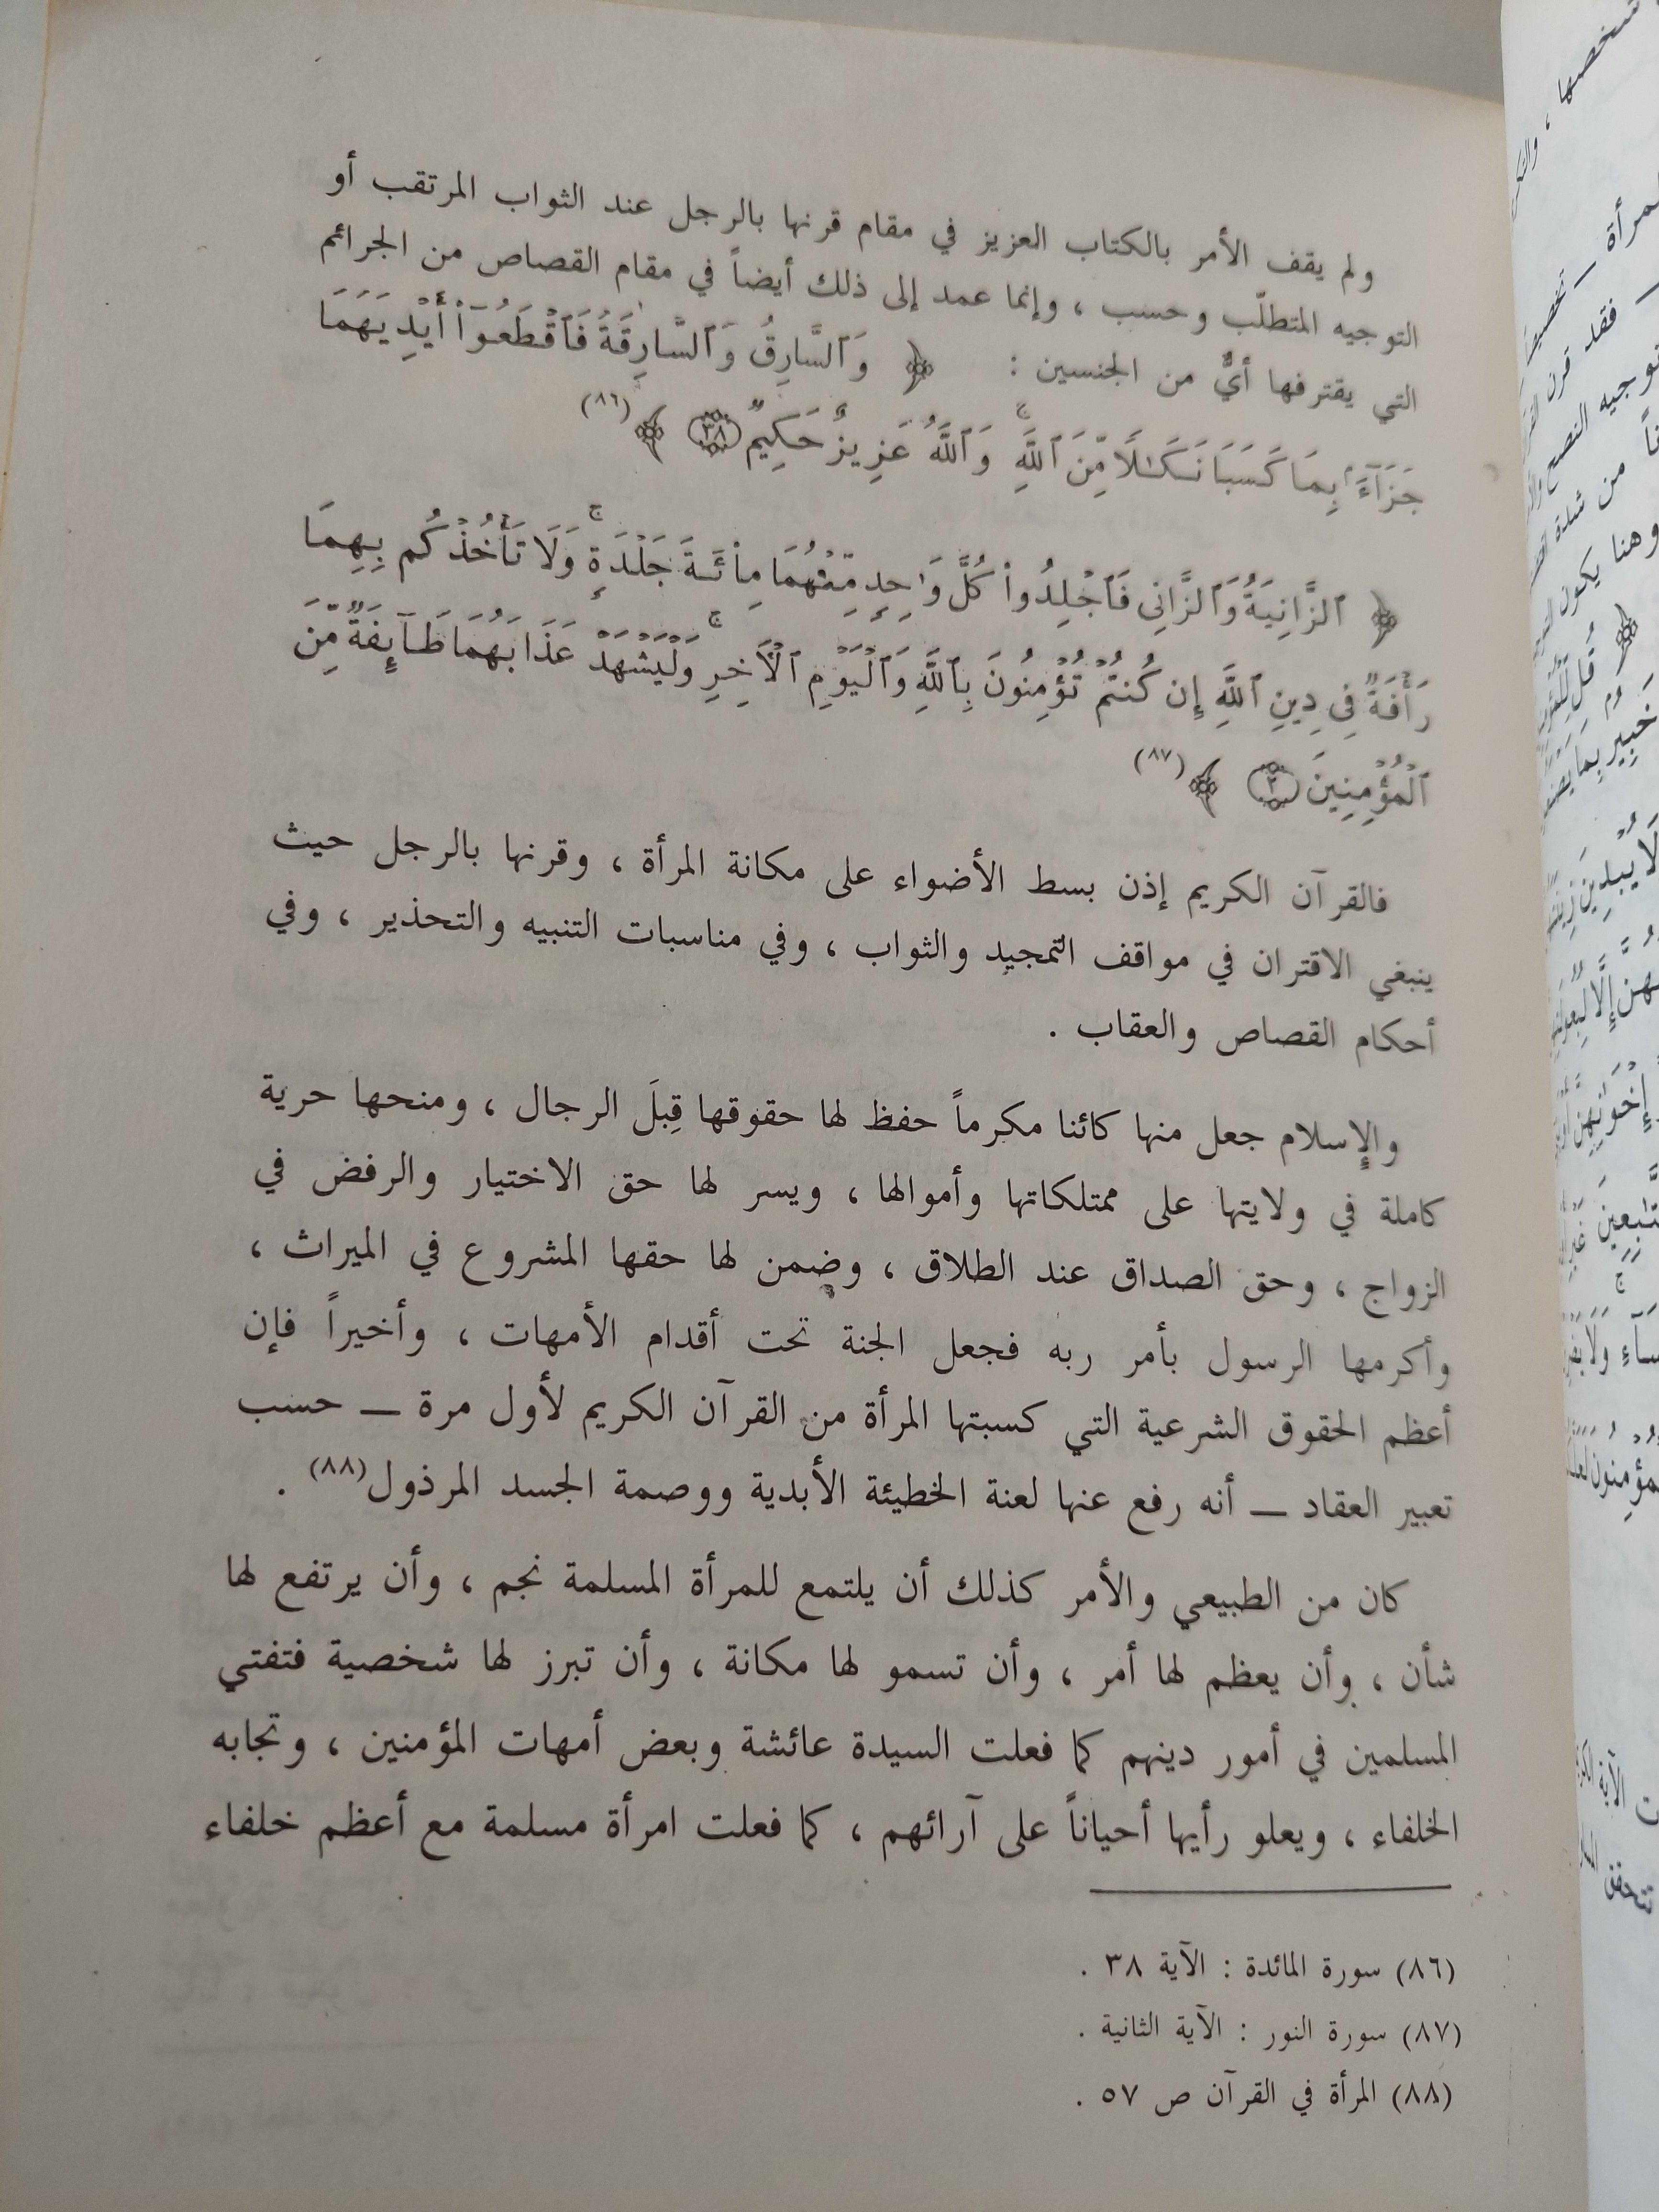 ولم يقف الأمر بالكتاب العزيز في مقام قرنها بالرجل عند الثواب المرتقب أو
التوجيه المتطلّب وحسب ، وإنما عمد إلى ذلك أيضاً في مقام القصاص من الجرائم
التي يقترفها أيٌّ من الجنسين : ﴿ وَٱلسَّارِقُ وَٱلسَّارِقَةُ فَٱقْطَعُوٓا۟ أَيْدِيَهُمَا
جَزَآءًۢ بِمَا كَسَبَا نَكَـٰلًا مِّنَ ٱللَّهِ ۗ وَٱللَّهُ عَزِيزٌ حَكِيمٌ ٣٨ ﴾ (٨٦)
﴿ ٱلزَّانِيَةُ وَٱلزَّانِى فَٱجْلِدُوا۟ كُلَّ وَٰحِدٍ مِّنْهُمَا مِا۟ئَةَ جَلْدَةٍ ۖ وَلَا تَأْخُذْكُم بِهِمَا
رَأْفَةٌ فِى دِينِ ٱللَّهِ إِن كُنتُمْ تُؤْمِنُونَ بِٱللَّهِ وَٱلْيَوْمِ ٱلْـَٔاخِرِ ۖ وَلْيَشْهَدْ عَذَابَهُمَا طَآئِفَةٌ مِّنَ
ٱلْمُؤْمِنِينَ ٢ ﴾ (٨٧)
فالقرآن الكريم إذن بسط الأضواء على مكانة المرأة ، وقرنها بالرجل حيث
ينبغي الاقتران في مواقف التمجيد والثواب ، وفي مناسبات التنبيه والتحذير ، وفي
أحكام القصاص والعقاب .
والإسلام جعل منها كائنا مكرماً حفظ لها حقوقها قِبلَ الرجال ، ومنحها حرية
كاملة في ولايتها على ممتلكاتها وأموالها ، ويسر لها حق الاختيار والرفض في
الزواج ، وحق الصداق عند الطلاق ، وضمن لها حقها المشروع في الميراث ،
وأكرمها الرسول بأمر ربه فجعل الجنة تحت أقدام الأمهات ، وأخيراً فإن
أعظم الحقوق الشرعية التي كسبتها المرأة من القرآن الكريم لأول مرة — حسب
تعبير العقاد — أنه رفع عنها لعنة الخطيئة الأبدية ووصمة الجسد المرذول(٨٨) .
كان من الطبيعي والأمر كذلك أن يلتمع للمرأة المسلمة نجم ، وأن يرتفع لها
شأن ، وأن يعظم لها أمر ، وأن تسمو لها مكانة ، وأن تبرز لها شخصية فتفتي
المسلمين في أمور دينهم كما فعلت السيدة عائشة وبعض أمهات المؤمنين ، وتجابه
الخلفاء ، ويعلو رأيها أحياناً على آرائهم ، كما فعلت امرأة مسلمة مع أعظم خلفاء
(٨٦) سورة المائدة : الآية ٣٨ .
(٨٧) سورة النور : الآية الثانية .
(٨٨) المرأة في القرآن ص ٥٧ .